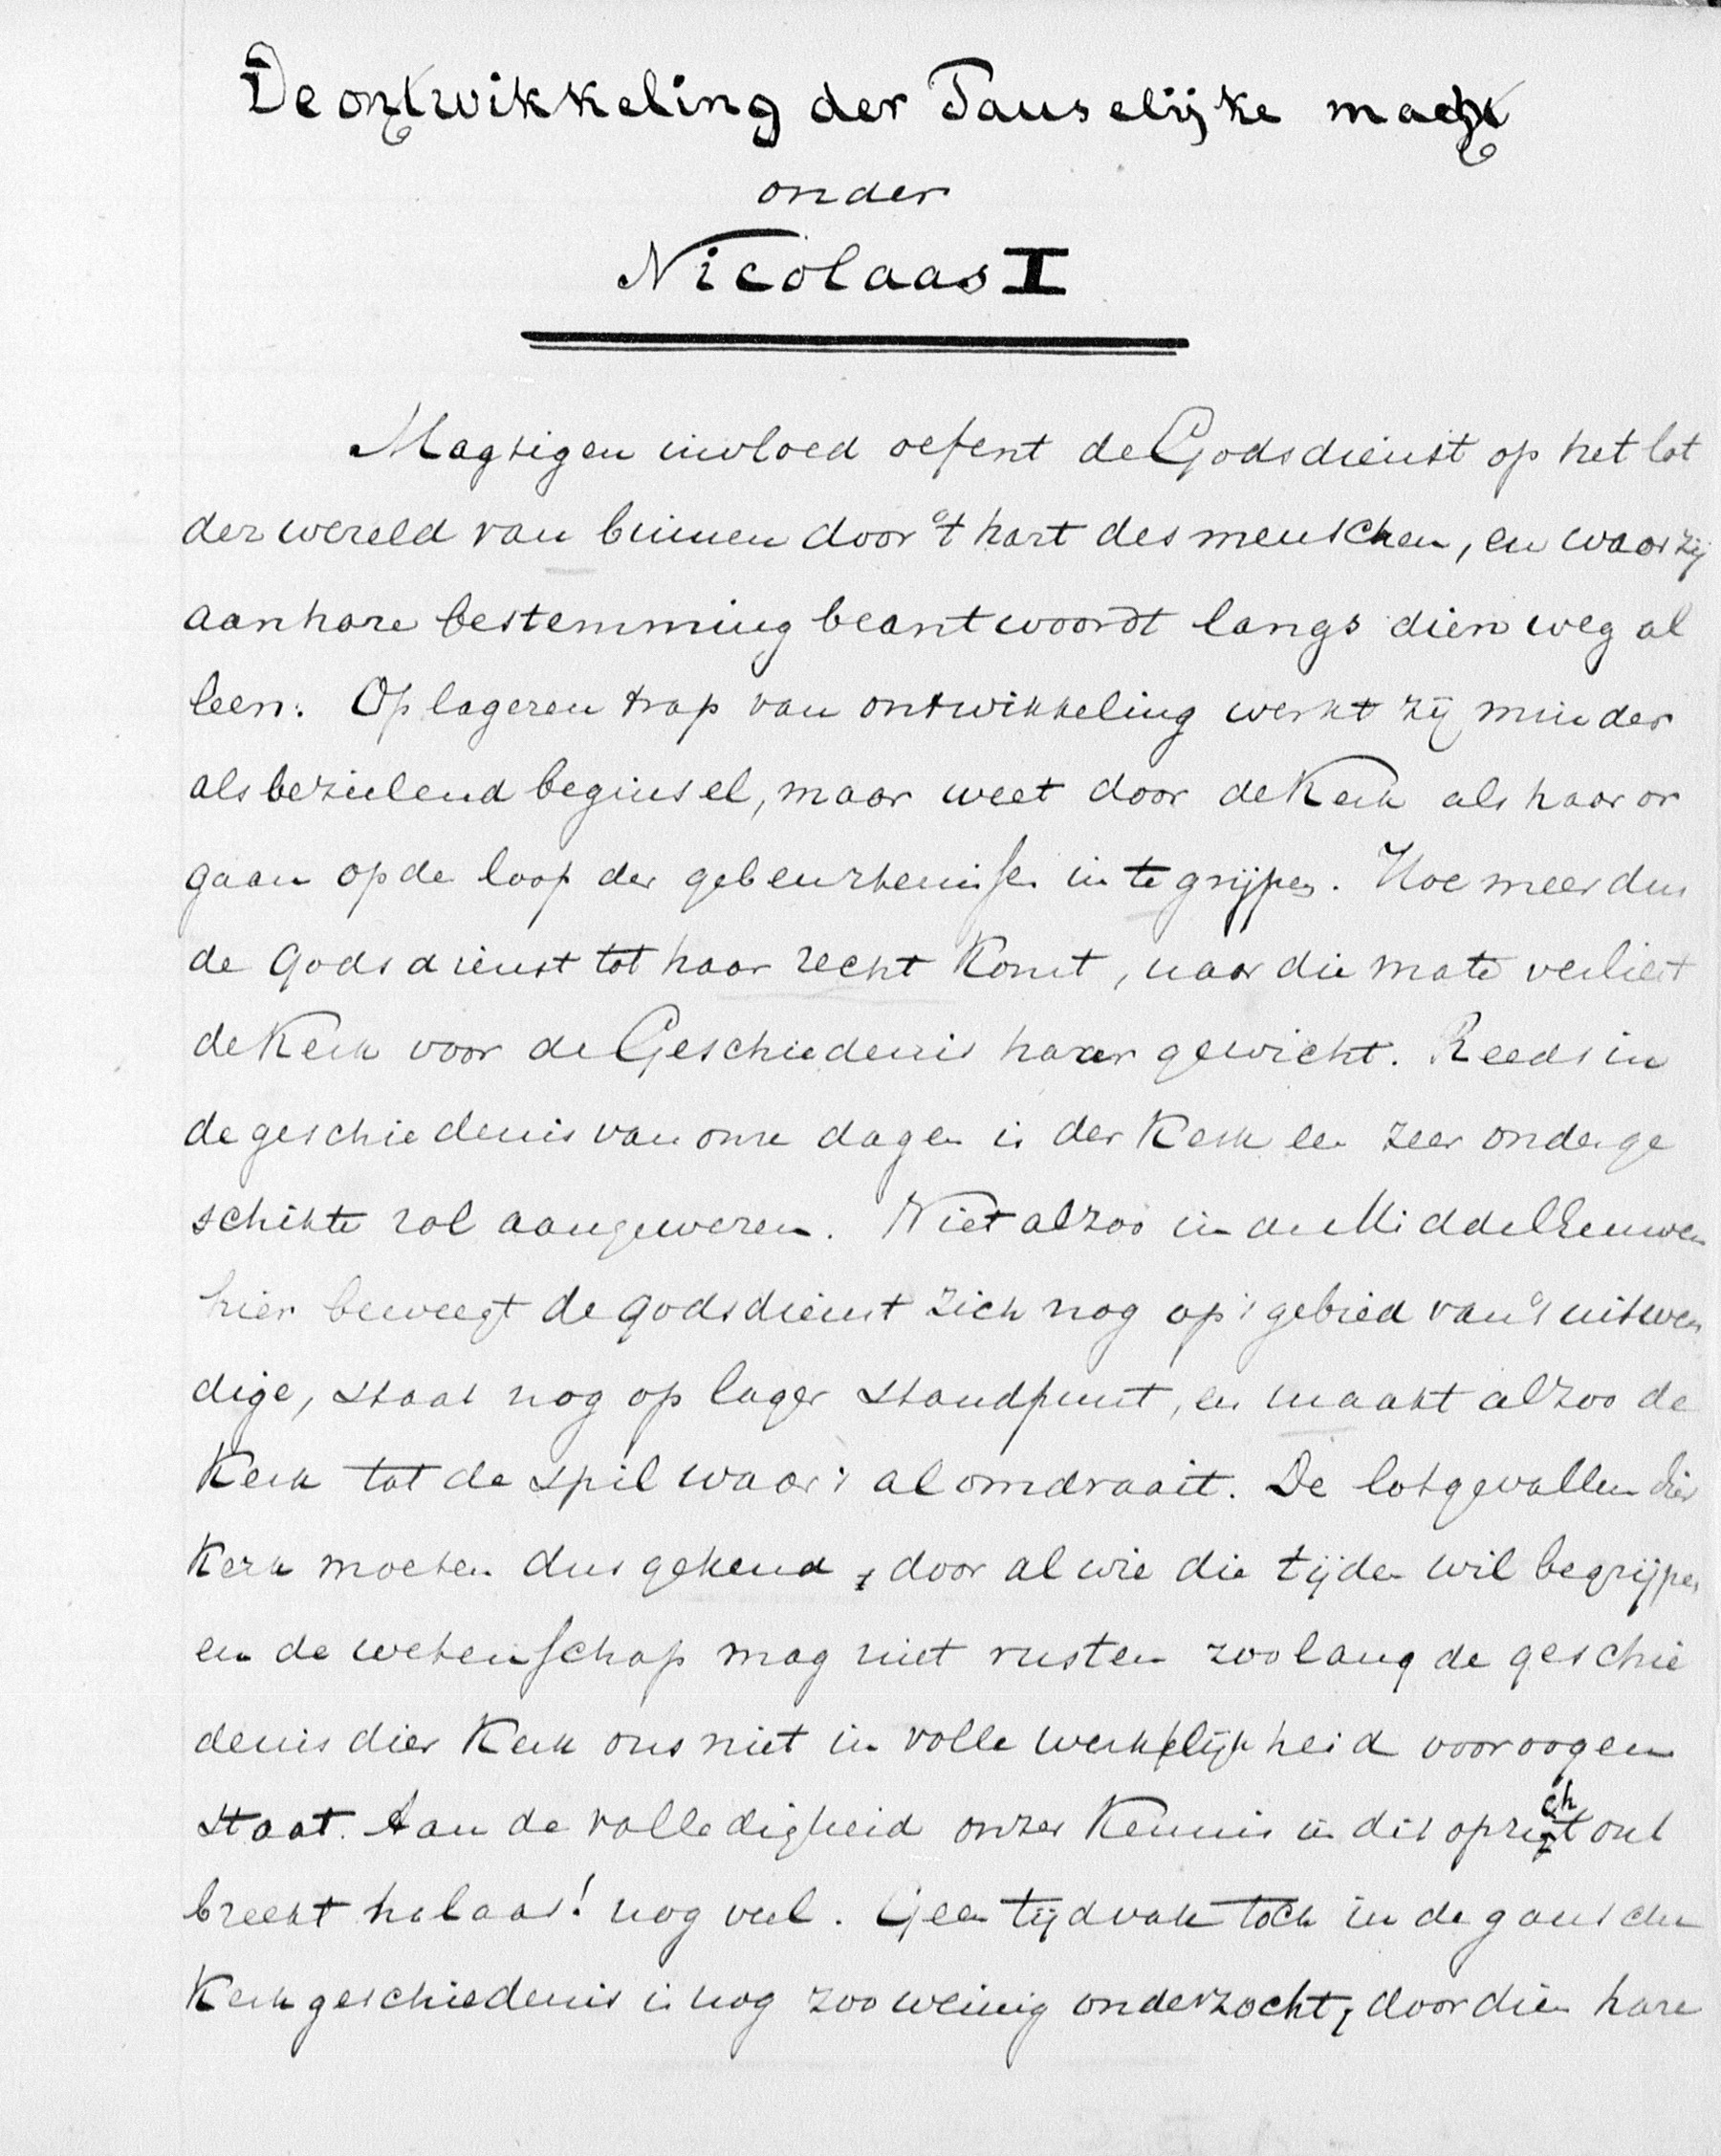 De ontwikkeling der Pauselijke macht
onder
Nicolaas I
Magtigen invloed oefent de Godsdienst op het lot
der wereld van binnen door 't hart des menschen, en waar zij
aan hare bestemming beantwoordt langs dien weg al
leen. Op lageren trap van ontwikkeling werkt zij minder
als bezielend beginsel, maar weet door de Kerk als haar or
gaan op de loop der gebeurtenissen in te grijpen. Hoe meer dus
de godsdienst tot haar recht komt, naar die mate verliest
de Kerk voor de Geschiedenis haar gewicht. Reeds in
de geschiedenis van onze dagen is der Kerk een zeer onderge
schikte rol aangewezen. Niet alzoo in de MiddelEeuwen
hier beweegt de godsdienst zich nog op 't gebied van 't uitwen
dige, staat nog op lager standpunt, en maakt alzoo de
Kerk tot de spil waar 't al omdraait. De lotgevallen dier
Kerk moeten dus gekend, door al wie die tijden wil begrijpen
en de wetenschap mag niet rusten zoolang de geschie
denis dier Kerk ons niet in volle werkelijkheid voor oogen
staat. Aan de volledigheid onzer kennis in dit opzicht ont
breekt helaas! nog veel. Geen tijdvak toch in de gansche
Kerkgeschiedenis is nog zoo weinig onderzocht, doordien hare